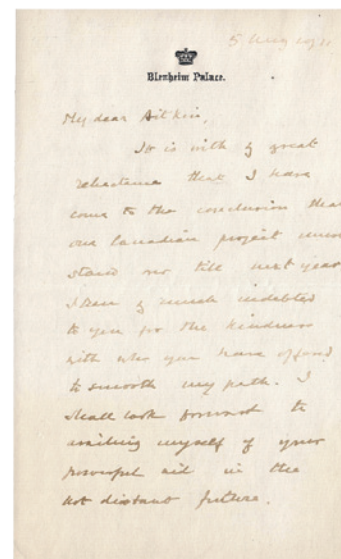 5 Aug 1911
Blenheim Palace.
My dear Aitkin,
It is with great
reluctance that I have
come to the conclusion that
our Canadian project must
stand over till next year
I am much indebted
to you for the kindness
with which you have offered
to smooth my path. I
shall look forward to
availing myself of your
powerful aid in the
not distant future.